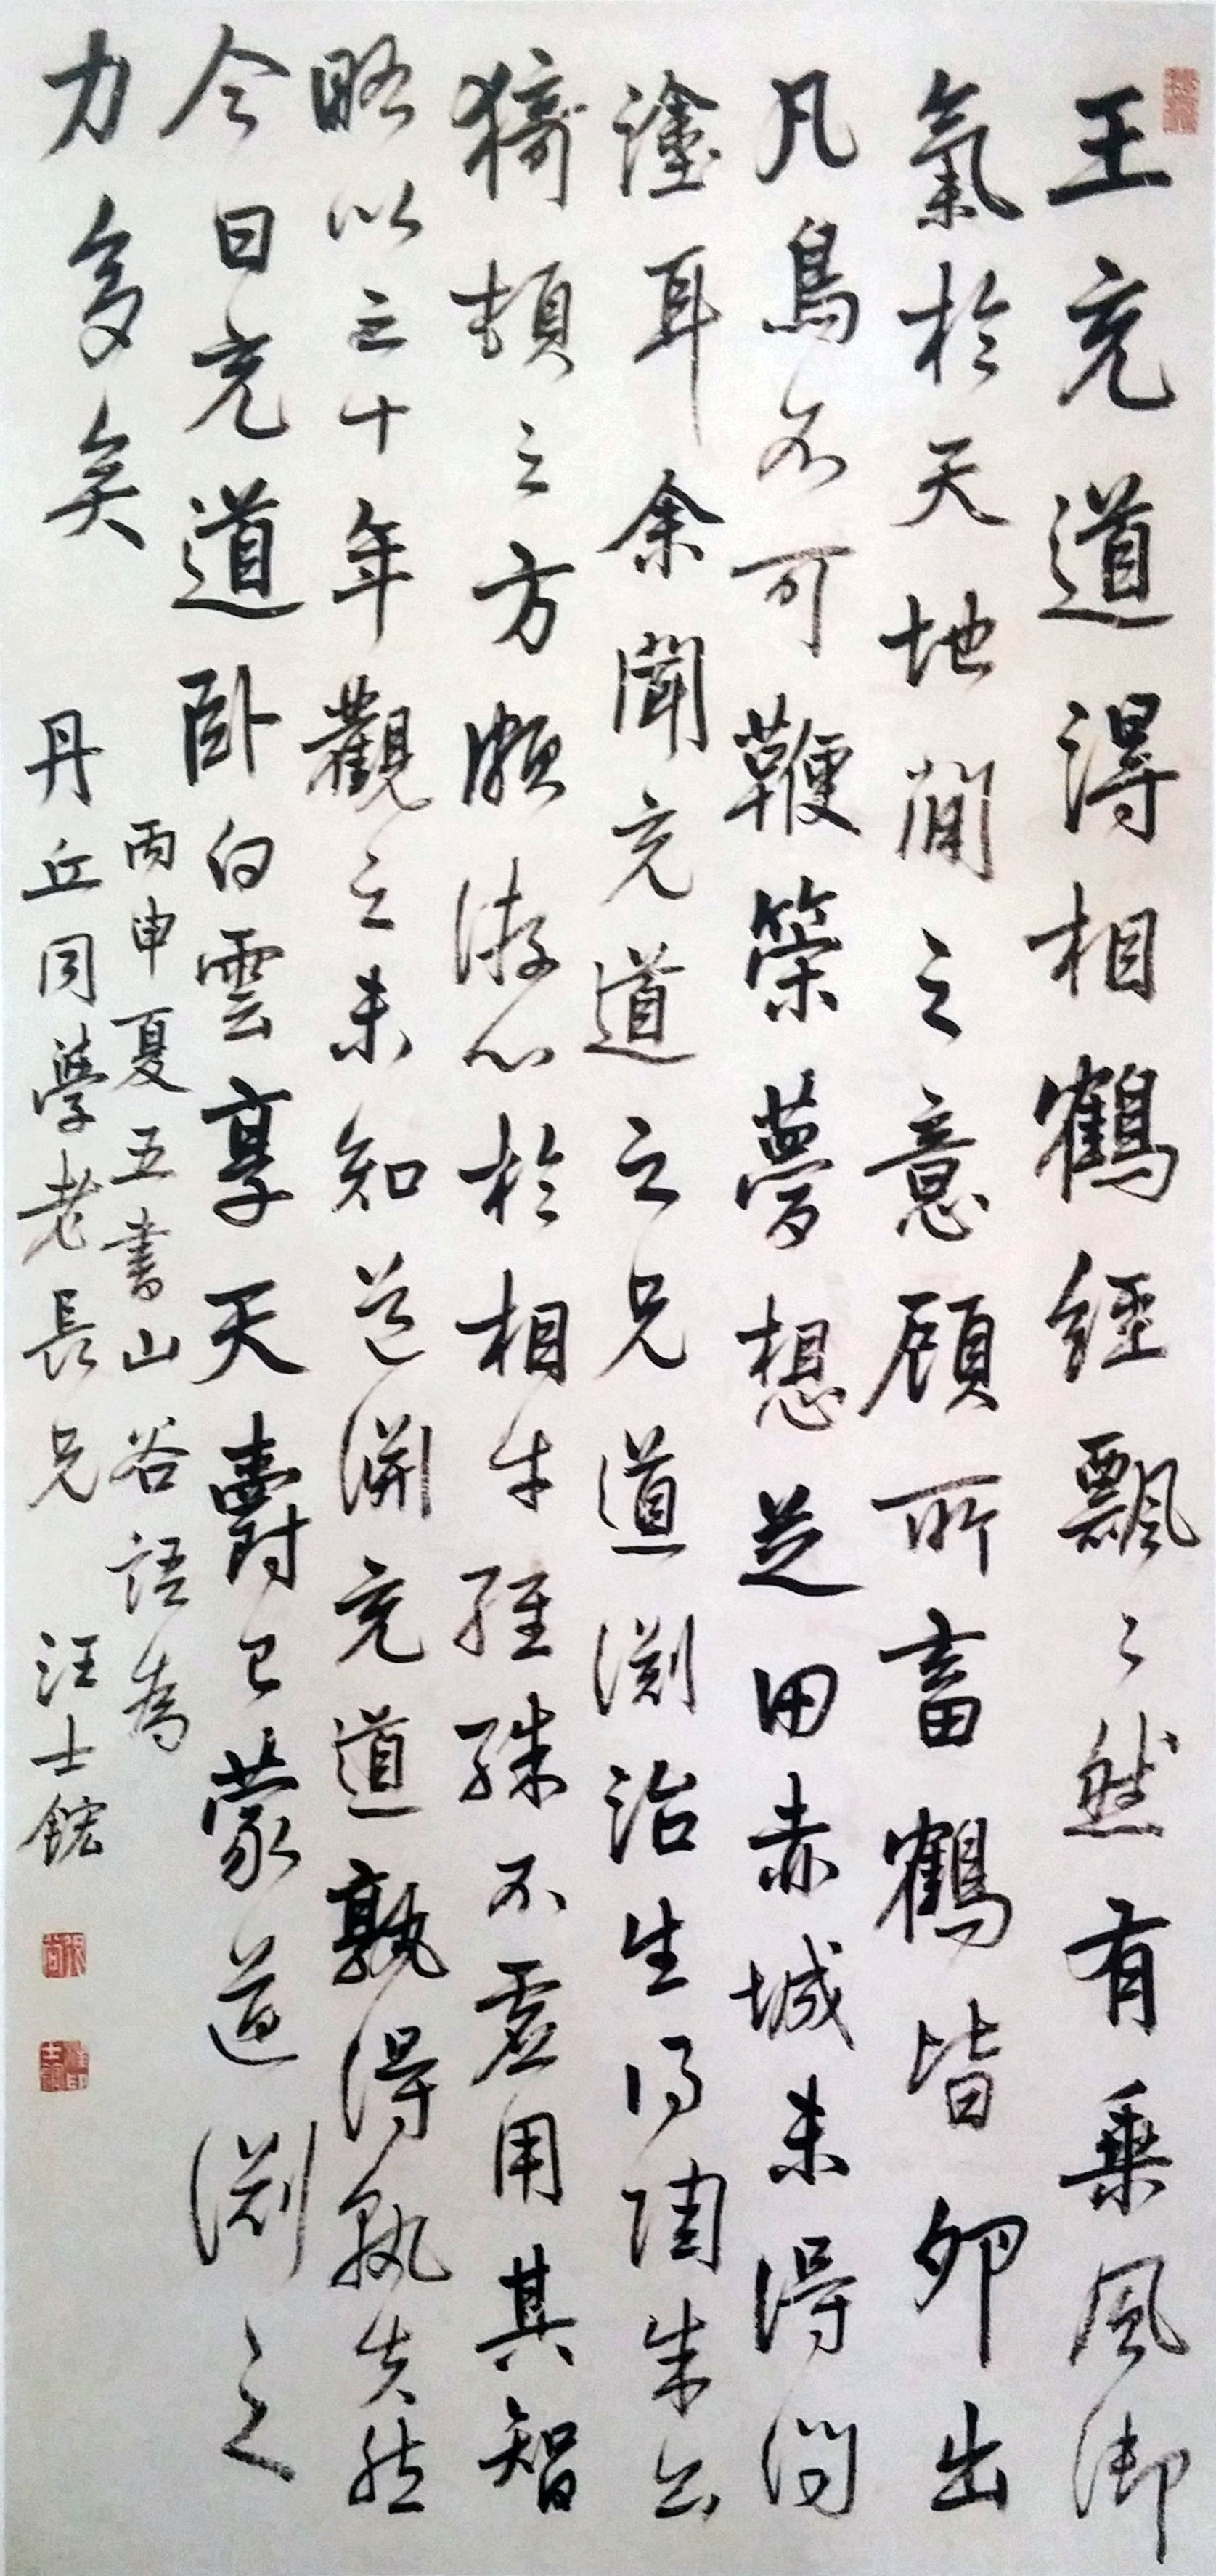 王充道得相鶴經飄〻然有乗風御
氣於天地間之意顧所畜鶴皆卵出
凡鳥不可鞭策夢想芝田赤城未得問
塗耳余聞充道之兄道渊治生得陶朱公
猗頓之方頗游心於相牛經殊不虚用其智
略以三十年觀之未知道渊充道孰得孰失然
今日充道卧白雲享天爵已蒙道渊之
力多矣
丙申夏五書山谷語為
丹丘同學老長兄 汪士鋐